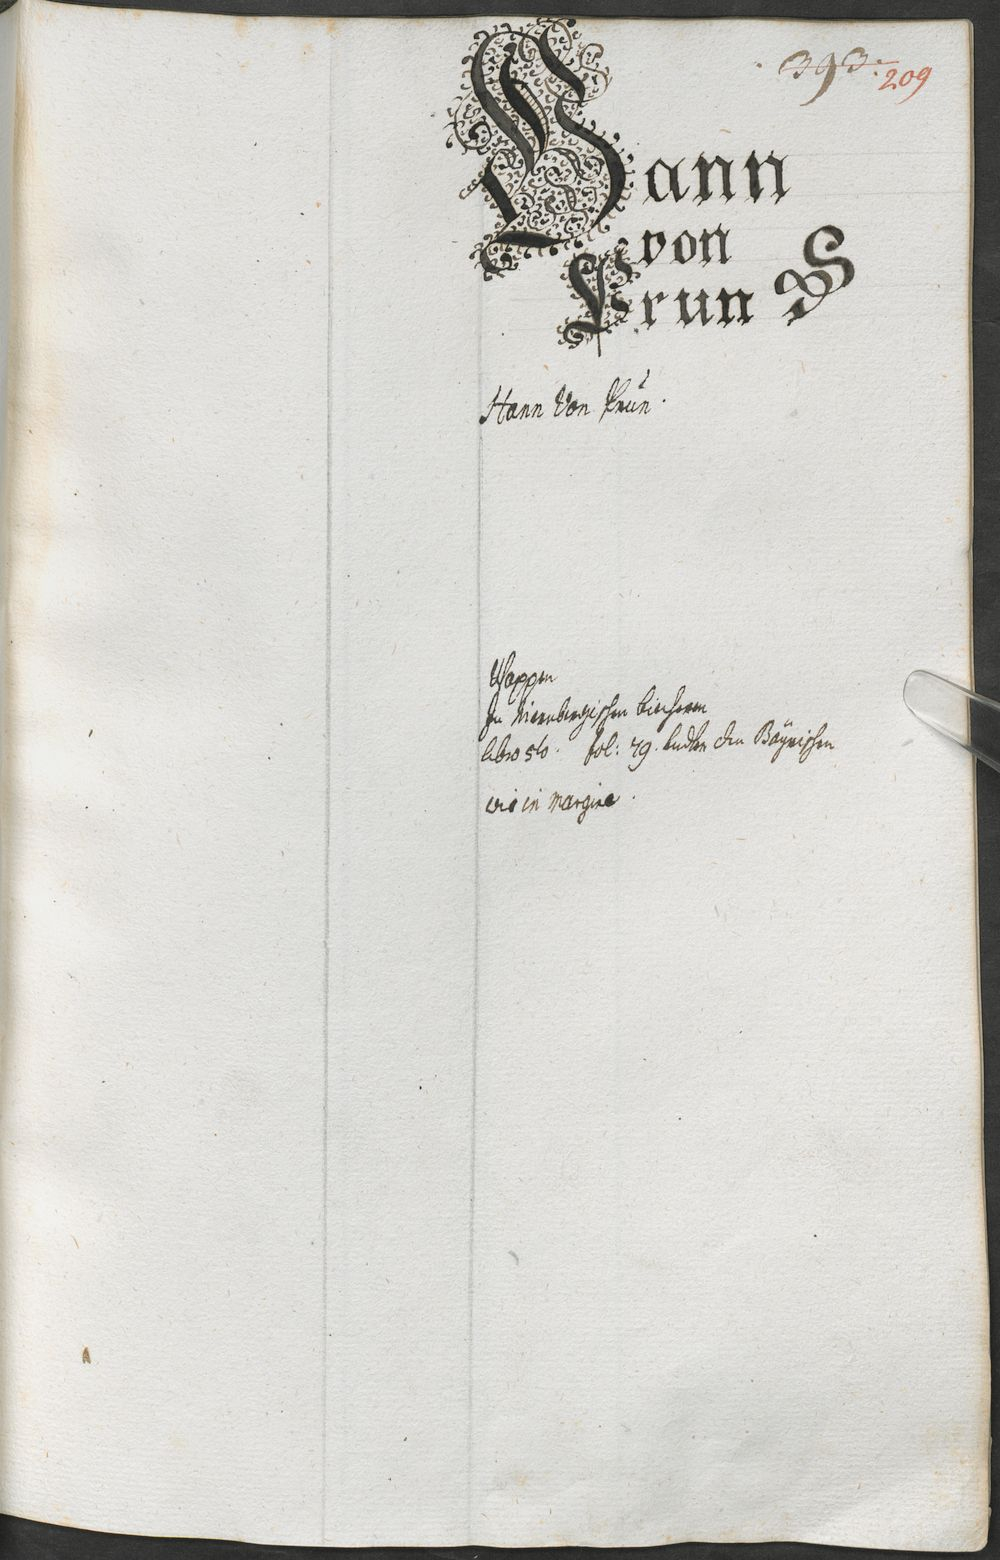 393.
209
Hann
von
Prun
Hann von Prün.
Wappen
In Niernbergischen biecheren
libro 56. fol: 79. under den Bayrischen
wie in margine.